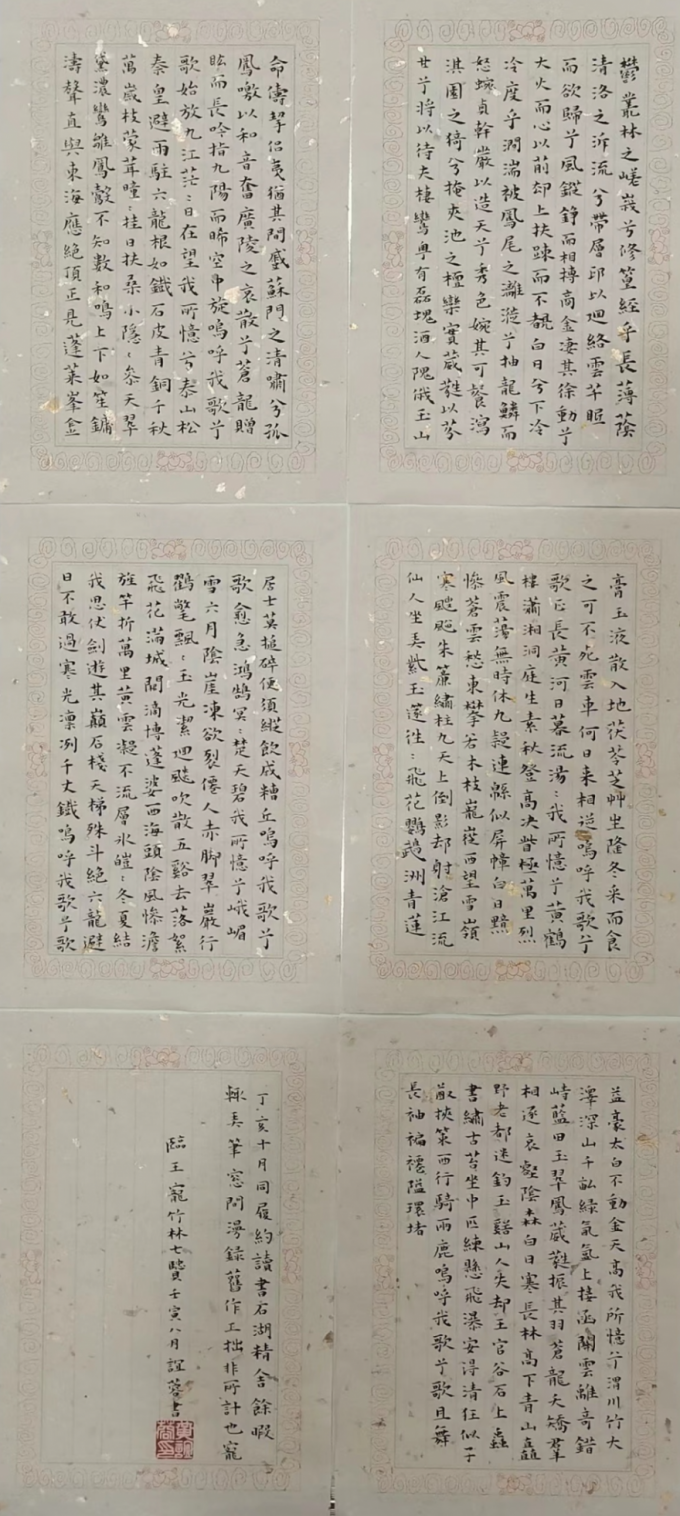 鬱叢林之嵯峩兮修篁經乎長薄蔭
清洛之泝流兮帶層邱以迴絡雲芊眠
而欲歸兮風鏦錚而相摶高金凄其徐動兮
大火而心以前却上扶踈而不覩白日兮下冷
冷度乎澗湍被鳳尾之離蓰兮抽龍鱗而
怒蜿貞幹巖以造天兮秀色婉其可餐瀉
淇園之猗兮掩夾池之檀欒實葳蕤以芬
廿兮將以待夫棲鸞粤有磊塊酒人隗俄玉山
命儔挈侶夷猶其間蹙蘇門之清嘯兮孤
鳳噭以和音奮廣陵之哀散兮蒼龍贈
眩而長吟指九陽而晞空中旋嗚呼我歌兮
歌始放九江茫:日在望我所憶兮泰山松
秦皇避雨駐六龍根如鐵石皮青銅千秋
萬歲枝蒙茸曈:挂日扶桑小隱:叅天翠
黛濃鸞雛鳳鷇不知數和鳴上下如笙鏞
濤聲直與東海應絶頂正見蓬萊峯金
膏玉液散入地茯苓芝艸生隆冬采而食
之可不死雲車何日来相迎嗚呼我歌兮
歌正長黄河日暮流湯:我所憶兮黄鶴
樓瀟湘洞庭生素秋登高决眥極萬里烈
風震蕩無時休九疑連緜似屏幛白日黯
慘蒼雲愁東攀若木枝巃嵸西望雪嶺
寒颼飀朱簾繡柱九天上倒影却射滄江流
仙人坐弄紫玉篴往:飛花鸚鵡洲青蓮
居士莫搥碎便須縱飲成糟丘嗚呼我歌兮
歌愈急鴻鵠冥:楚天碧我所憶兮峨嵋
雪六月陰崖凍欲裂僊人赤脚翠巖行
鶴氅飄:玉光潔迴飈吹散五谿去落絮
飛花满城闕滴博蓬婆西海頭陰風慘澹
旌竿折萬里黄雲凝不流層氷皚:冬夏結
我思伏劍遊其巔石棧天梯殊斗絶六龍避
日不敢過寒光凛冽千丈鐵嗚呼我歌兮歌
益豪太白不動金天高我所憶兮渭川竹大
澤深山千畝緑氣氤上接函關雲離竒錯
峙藍田玉翠鳳葳蕤振其羽蒼龍夭矯羣
相逐哀壑陰森白日寒長林高下青山矗
野老都迷釣玉谿山人失却王官谷石上蟲
書繡古苔坐中匹練懸飛瀑安得清狂似子
猷挾策西行騎兩鹿嗚呼我歌兮歌且舞
長袖褊褼隘環堵
丁亥十月同履約讀書石湖精舍餘暇
輒弄筆窓間漫録舊作工拙非所計也寵
臨王寵竹林七賢壬寅八月誼薈書